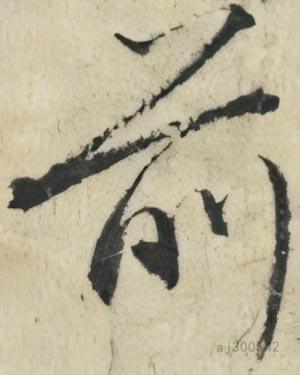 前
aj300542